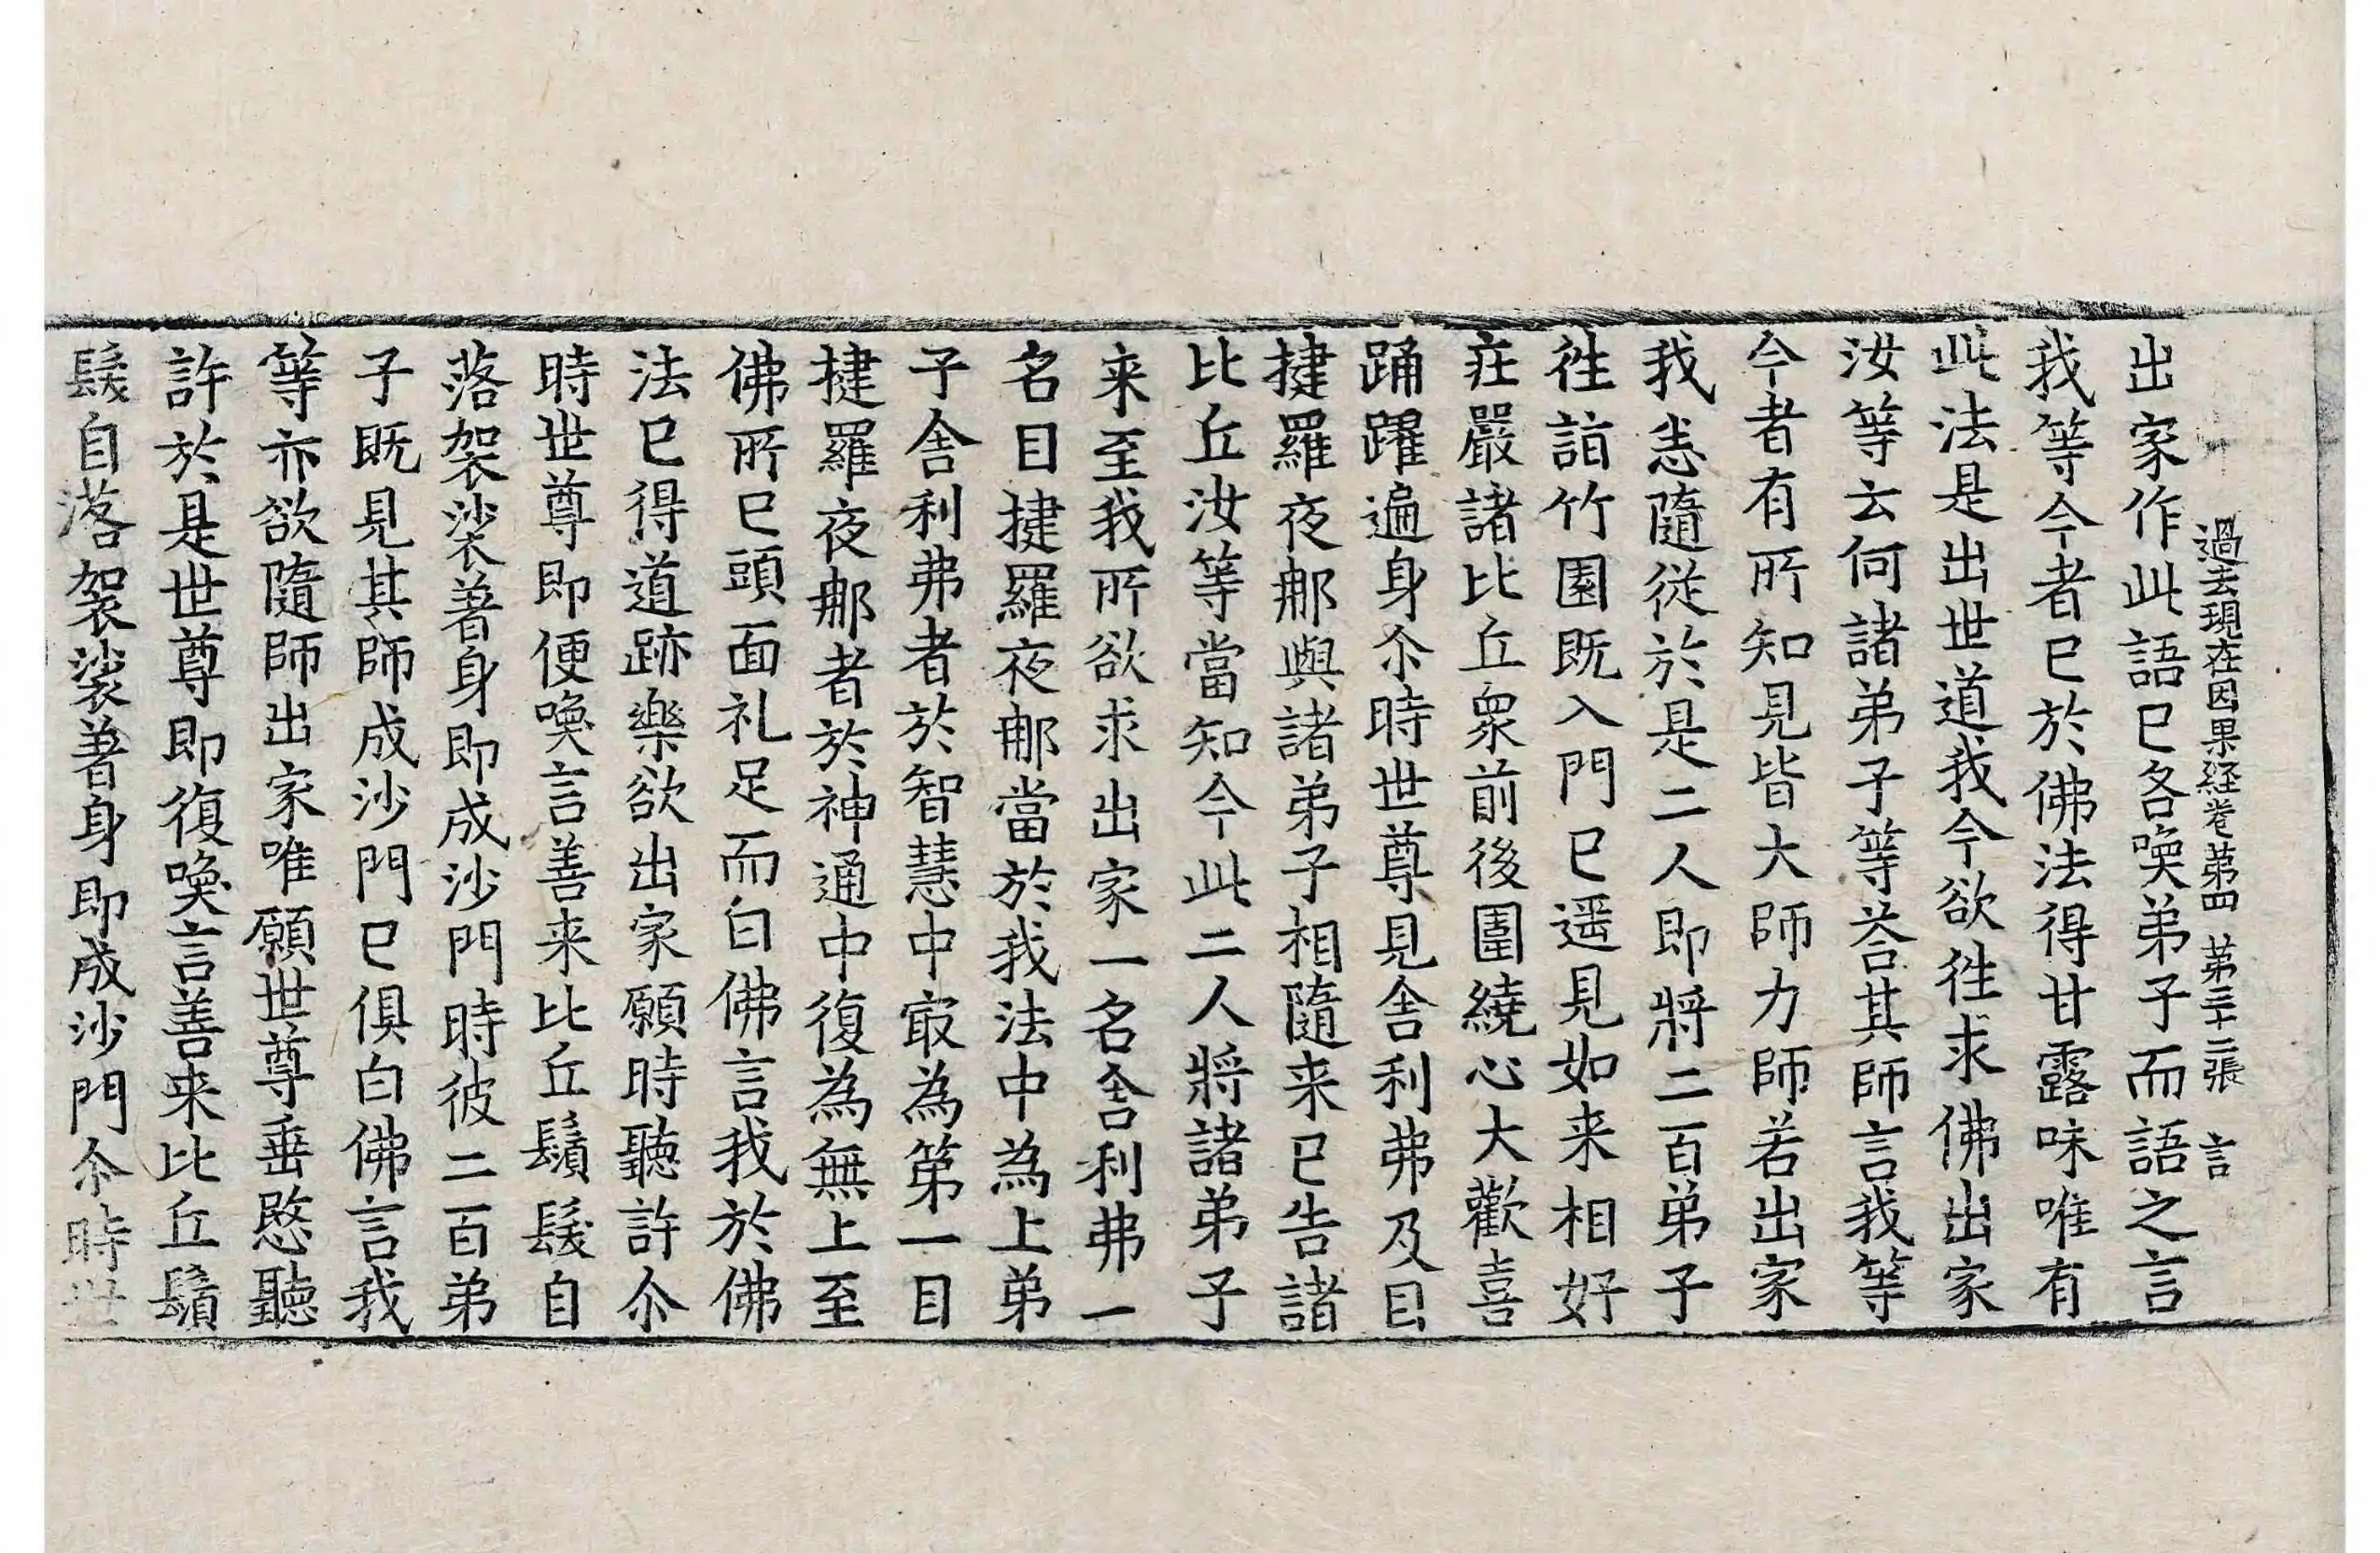 過去現在因果経卷苐四 苐三十二張 言
出家作此語已各喚弟子而語之言
我等今者已於佛法得甘露味唯有
此法是出世道我今欲徃求佛出家
汝等云何諸弟子等荅其師言我等
今者有所知見皆大師力師若出家
我悉隨従於是二人即將二百弟子
徃詣竹園既入門已遥見如来相好
莊嚴諸比丘衆前後圍繞心大歡喜
踊躍遍身尒時世尊見舎利弗及目
揵羅夜那與諸弟子相隨来已告諸
比丘汝等當知今此二人將諸弟子
来至我所欲求出家一名舎利弗一
名目揵羅夜那當於我法中為上弟
子舎利弗者於智慧中㝡為第一目
揵羅夜那者於神通中復為無上至
佛所已頭面礼足而白佛言我於佛
法已得道跡樂欲出家願時聽許尒
時世尊即便喚言善来比丘鬚髮自
落袈裟著身即成沙門時彼二百弟
子既見其師成沙門已俱白佛言我
等亦欲隨師出家唯願世尊垂愍聽
許於是世尊即復喚言善来比丘鬚
髮自落袈裟著身即成沙門尒時世